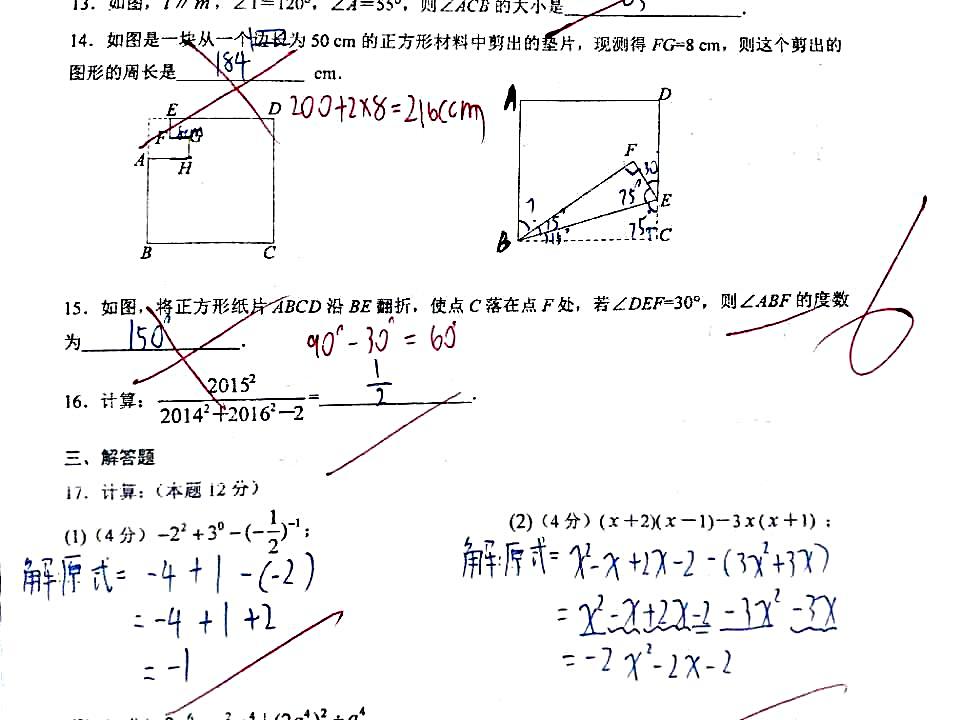 13. 如图, l // m, ∠1=120°, ∠A=55°, 则∠ACB 的大小是
14. 如图是一块从一个边长为 50 cm 的正方形材料中剪出的垫片, 现测得 FG=8 cm, 则这个剪出的
图形的周长是 184 cm.
200+2×8=216(cm)
E D
F 8cm G
A H
B C
A D
F 30°
75° E
? 15°
B 15° 75° C
15. 如图, 将正方形纸片 ABCD 沿 BE 翻折, 使点 C 落在点 F 处, 若∠DEF=30°, 则∠ABF 的度数
为 150° .
90°-30°=60°
16. 计算: 2015² / (2014²+2016²-2) = 1/2 .
三、解答题
17. 计算: (本题 12 分)
(1) (4 分) -2²+3⁰-(-1/2)⁻¹;
解:原式= -4+1-(-2)
= -4+1+2
= -1
(2) (4 分) (x+2)(x-1)-3x(x+1) ;
解:原式= x²-x+2x-2-(3x²+3x)
= x²-x+2x-2-3x²-3x
= -2x²-2x-2
6